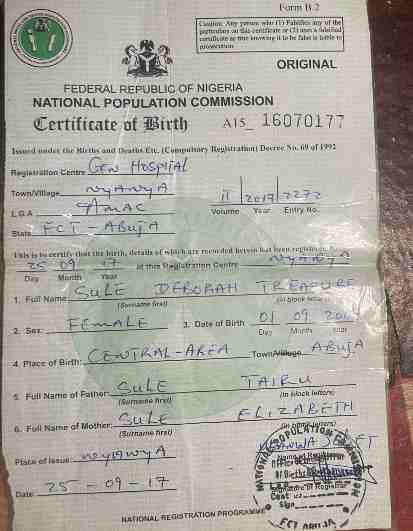 Form B.2
Caution: Any person who (1) Falsifies any of the
particulars on this certificate or (2) uses a falsified
certificate as true knowing it to be false is liable to
prosecution
ORIGINAL
FEDERAL REPUBLIC OF NIGERIA
NATIONAL POPULATION COMMISSION
Certificate of Birth A15_ 16070177
Issued under the Births and Deaths Etc. (Compulsory Registration) Decree No. 69 of 1992
Registration Centre GEN HOSPITAL
Town/Village NYANYA
L.G.A AMAC
II 2017 2272
Volume Year Entry No.
State FCT - ABUJA
This is to certify that the birth, details of which are recorded herein has been registered
25 09 17 at this Registration Centre NYANYA
Day Month Year
1. Full Name SULE DEBORAH TREASURE
(Surname first) (In block letters)
2. Sex: FEMALE 3. Date of Birth 01 09
Day Month Year
4. Place of Birth: CENTRAL-AREA Town/Village ABUJA
5. Full Name of Father: SULE TAIRU
(Surname first) (In block letters)
6. Full Name of Mother: SULE ELIZABETH
(Surname first) (In block letters)
Place of Issue: NYANYA
Name of Registrar
Signature of Registrar
Date 25 - 09 - 17
Sign
FCT ABUJA
NATIONAL REGISTRATION PROGRAMME